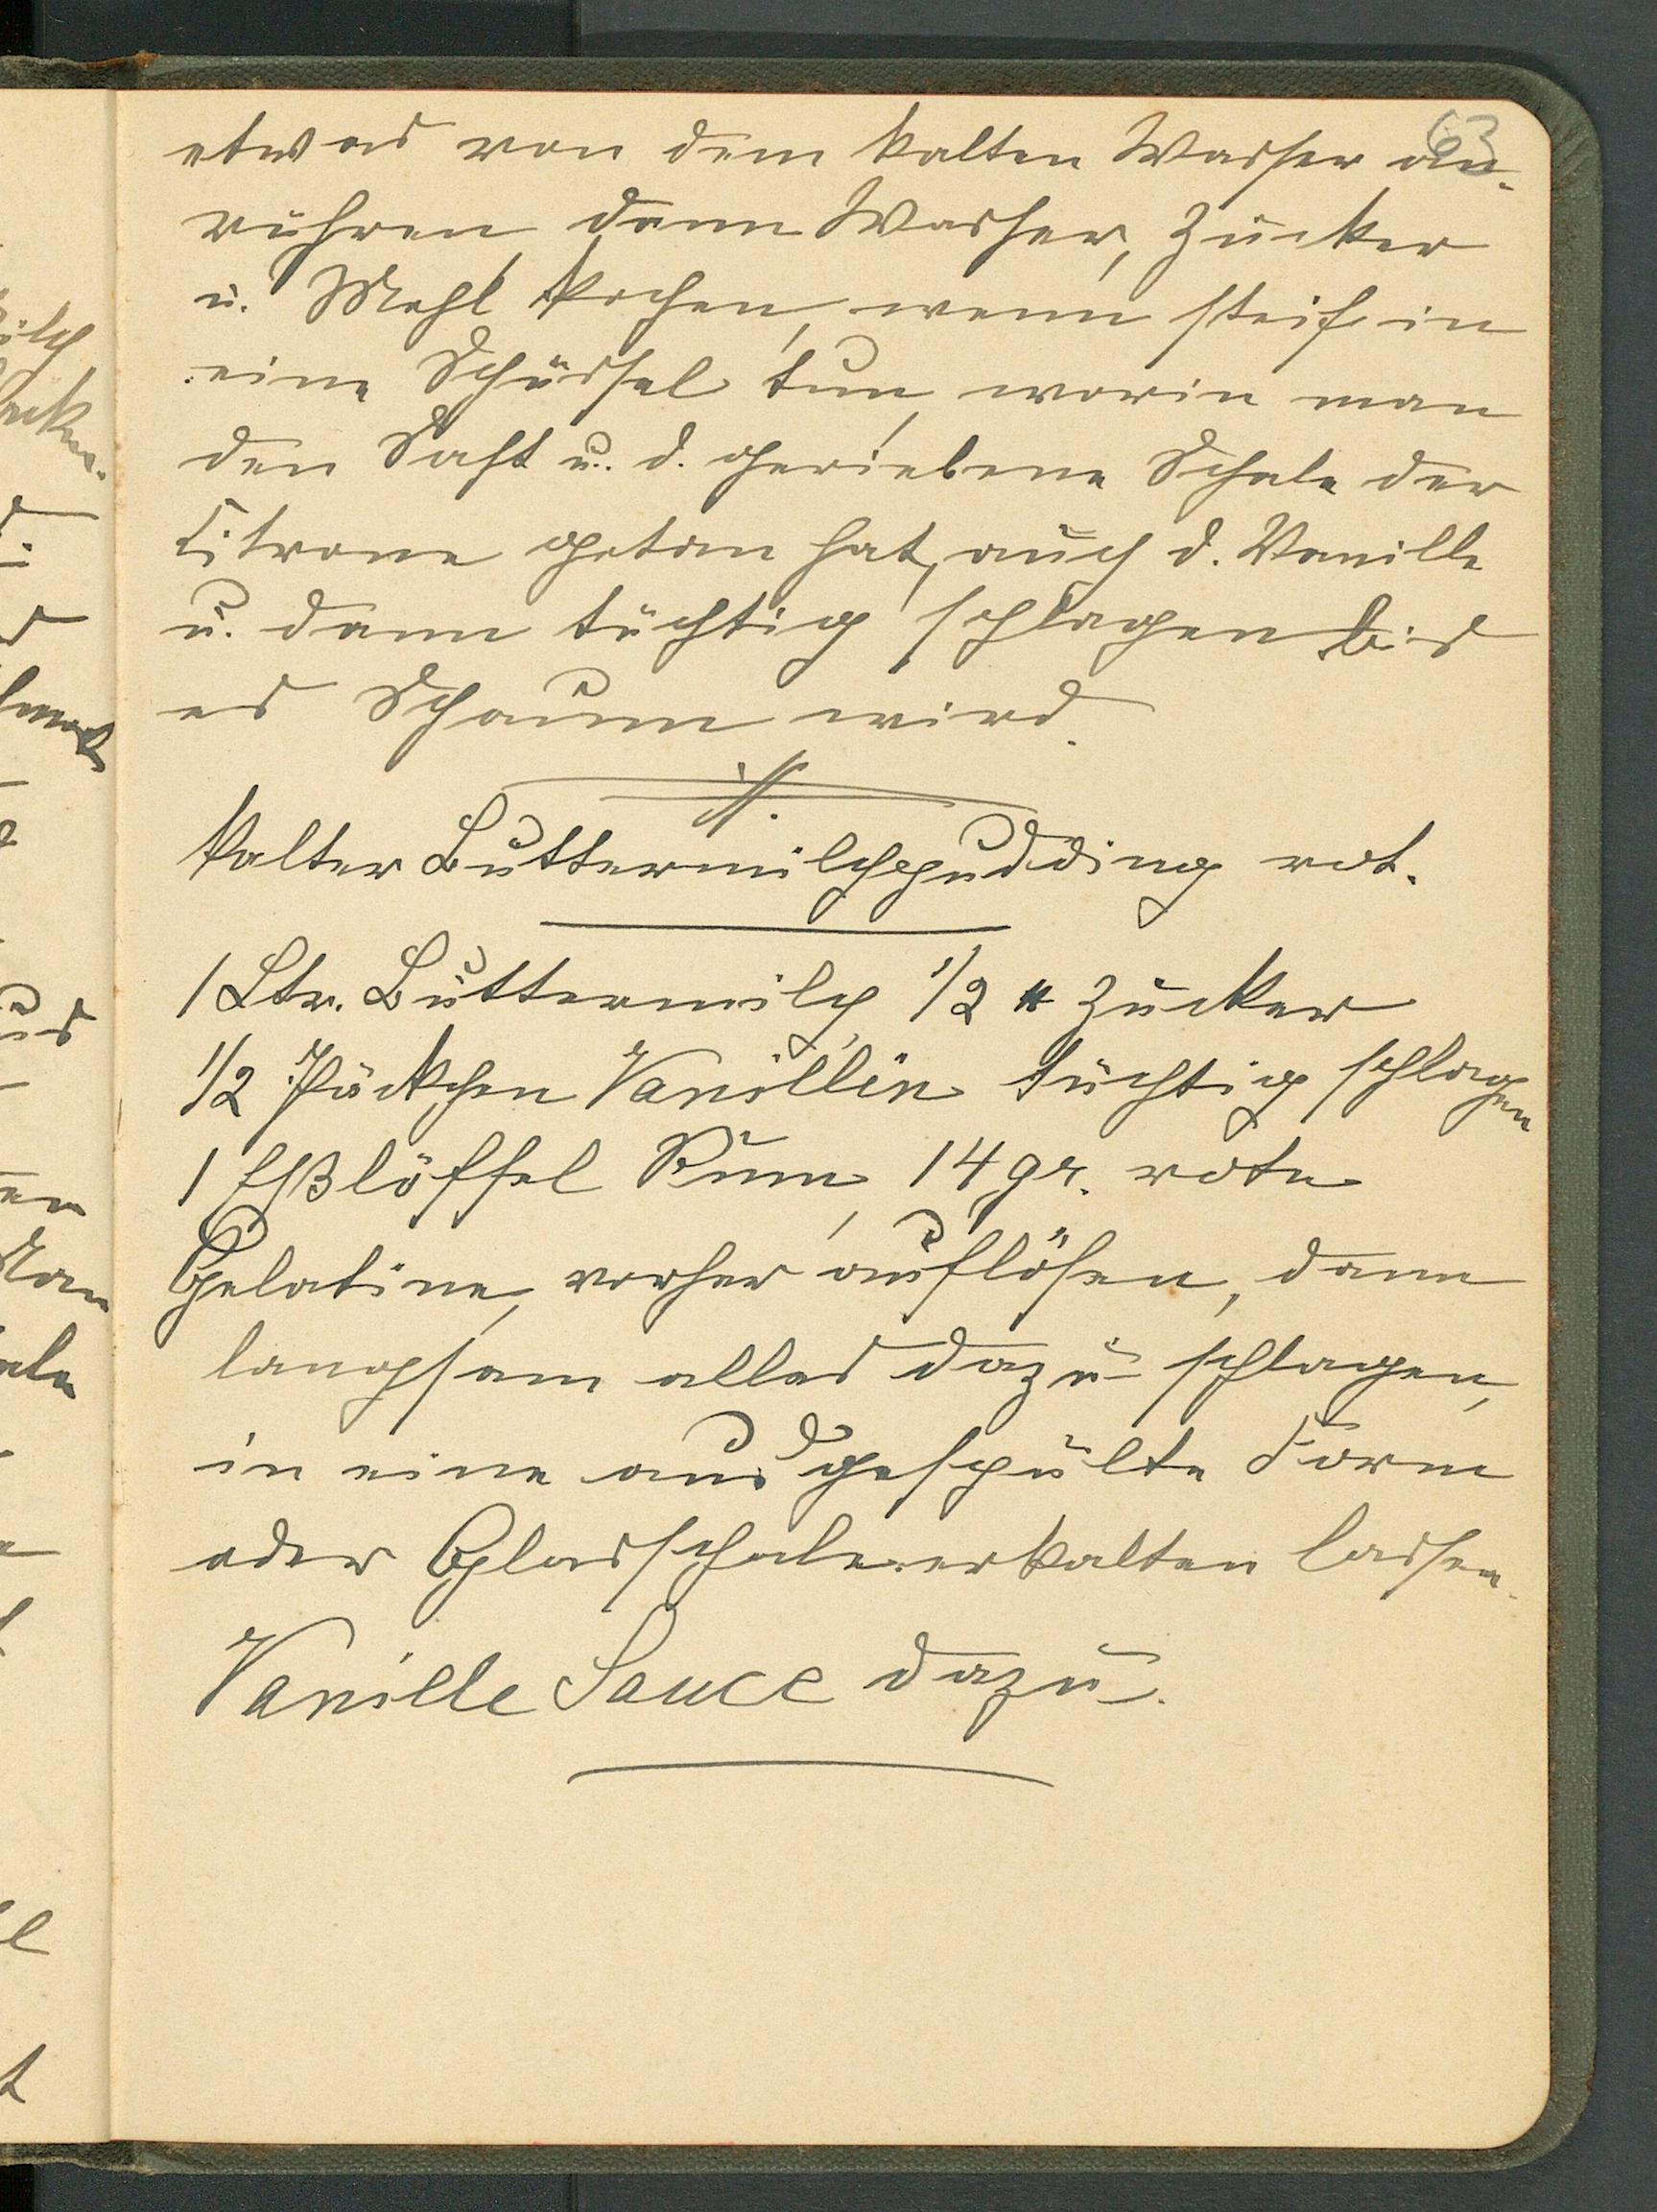 63
etwas von dem kalten Wasser an-
rühren, dann Wasser, Zucker
u. Mehl kochen, wenn steif in
eine Schüssel tun, worin man
den Saft u. d. geriebene Schale der
Citrone getan hat, auch d. Vanille
u. dann tüchtig schlagen bis
es Schaum wird.
Kalter Buttermilchpudding rot.
1 Ltr. Buttermilch, 1/2 ℔ Zucker
1/2 Päckchen Vanillin tüchtig schlagen
1 Eßlöffel Rum, 14 gr. rote
Gelatine, vorher auflösen, dann
langsam alles dazu schlagen,
in eine ausgespülte Form
oder Glasschale erkalten lassen.
Vanille Sauce dazu.